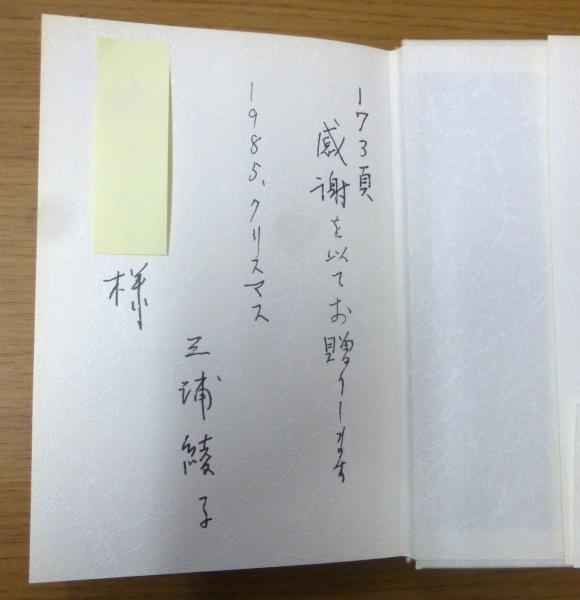 173頁
感謝を以てお贈りします
1985、クリスマス
三浦綾子
様